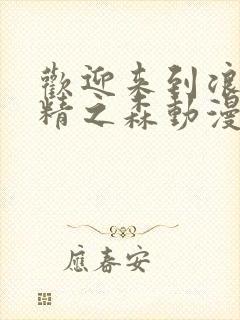 歡迎來到浪
精之森動漫
應春安